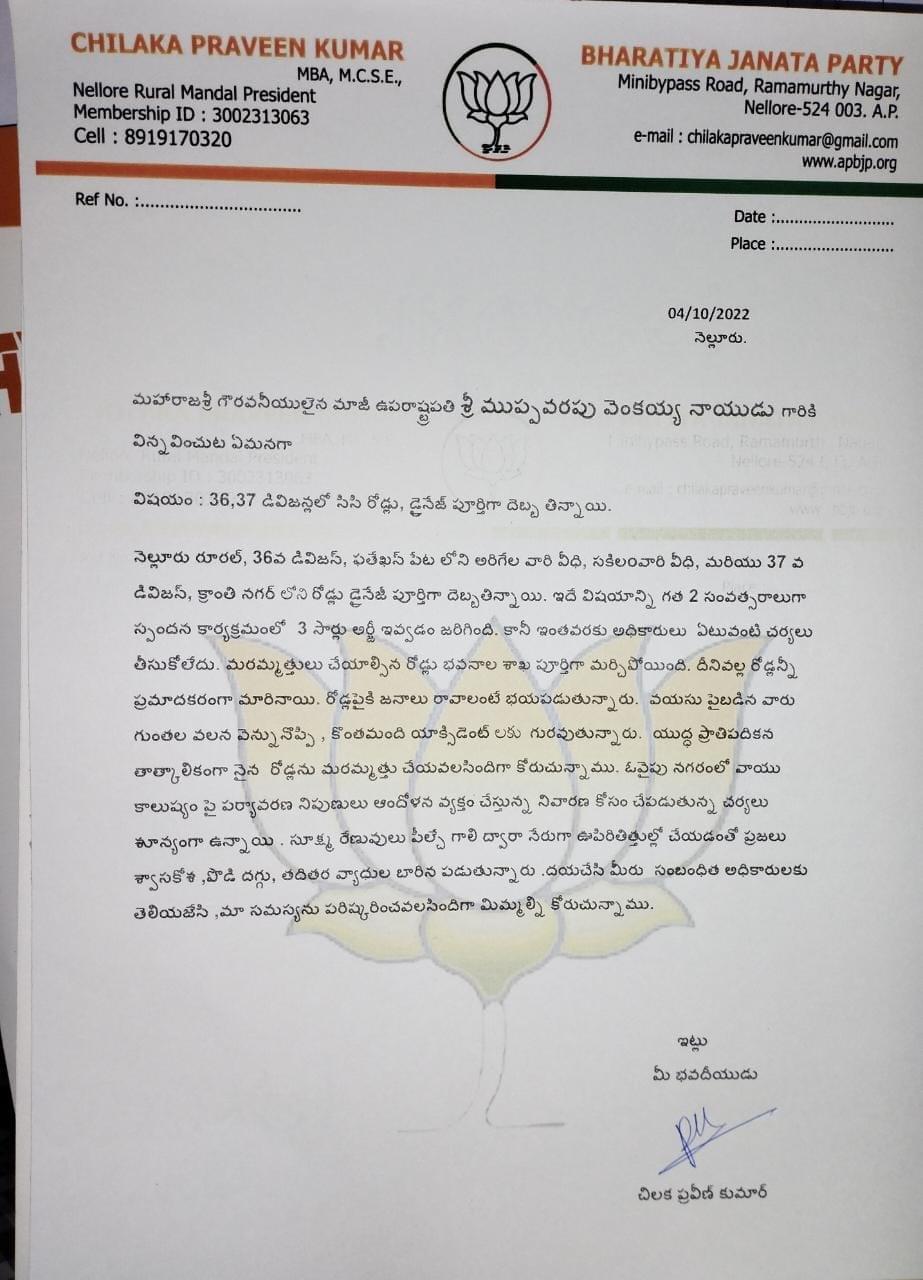 CHILAKA PRAVEEN KUMAR
MBA, M.C.S.E.,
Nellore Rural Mandal President
Membership ID : 3002313063
Cell : 8919170320
BHARATIYA JANATA PARTY
Minibypass Road, Ramamurthy Nagar,
Nellore-524 003. A.P.
e-mail : chilakapraveenkumar@gmail.com
www.apbjp.org
Ref No. :.................................
Date :.........................
Place :.........................
04/10/2022
నెల్లూరు.
మహారాజశ్రీ గౌరవనీయులైన మాజీ ఉపరాష్ట్రపతి శ్రీ ముప్పవరపు వెంకయ్య నాయుడు గారికి
విన్నవించుట ఏమనగా
విషయం : 36,37 డివిజన్లలో సిసి రోడ్లు, డ్రైనేజ్ పూర్తిగా దెబ్బ తిన్నాయి.
నెల్లూరు రూరల్, 36వ డివిజస్, ఫతేఖస్ పేట లోని అరిగేల వారి వీధి, సకిలంవారి వీధి, మరియు 37 వ
డివిజస్, క్రాంతి నగర్ లోని రోడ్లు డ్రైనేజీ పూర్తిగా దెబ్బతిన్నాయి. ఇదే విషయాన్ని గత 2 సంవత్సరాలుగా
స్పందన కార్యక్రమంలో 3 సార్లు అర్జీ ఇవ్వడం జరిగింది. కానీ ఇంతవరకు అధికారులు ఏటువంటి చర్యలు
తీసుకోలేదు. మరమ్మత్తులు చేయాల్సిన రోడ్లు భవనాల శాఖ పూర్తిగా మర్చిపోయింది. దీనివల్ల రోడ్లన్నీ
ప్రమాదకరంగా మారినాయి. రోడ్లపైకి జనాలు రావాలంటే భయపడుతున్నారు. వయసు పైబడిన వారు
గుంతల వలన వెన్నునొప్పి , కొంతమంది యాక్సిడెంట్ లకు గురవుతున్నారు. యుద్ధ ప్రాతిపదికన
తాత్కాలికంగా నైన రోడ్లను మరమ్మత్తు చేయవలసిందిగా కోరుచున్నాము. ఓవైపు నగరంలో వాయు
కాలుష్యం పై పర్యావరణ నిపుణులు ఆందోళన వ్యక్తం చేస్తున్న నివారణ కోసం చేపడుతున్న చర్యలు
శూన్యంగా ఉన్నాయి . సూక్ష్మ రేణువులు పీల్చే గాలి ద్వారా నేరుగా ఊపిరితిత్తుల్లో చేయడంతో ప్రజలు
శ్వాసకోశ ,పొడి దగ్గు, తదితర వ్యాధుల బారిన పడుతున్నారు .దయచేసి మీరు సంబంధిత అధికారులకు
తెలియజేసి ,మా సమస్యను పరిష్కరించవలసిందిగా మిమ్మల్ని కోరుచున్నాము.
ఇట్లు
మీ భవదీయుడు
చిలక ప్రవీణ్ కుమార్